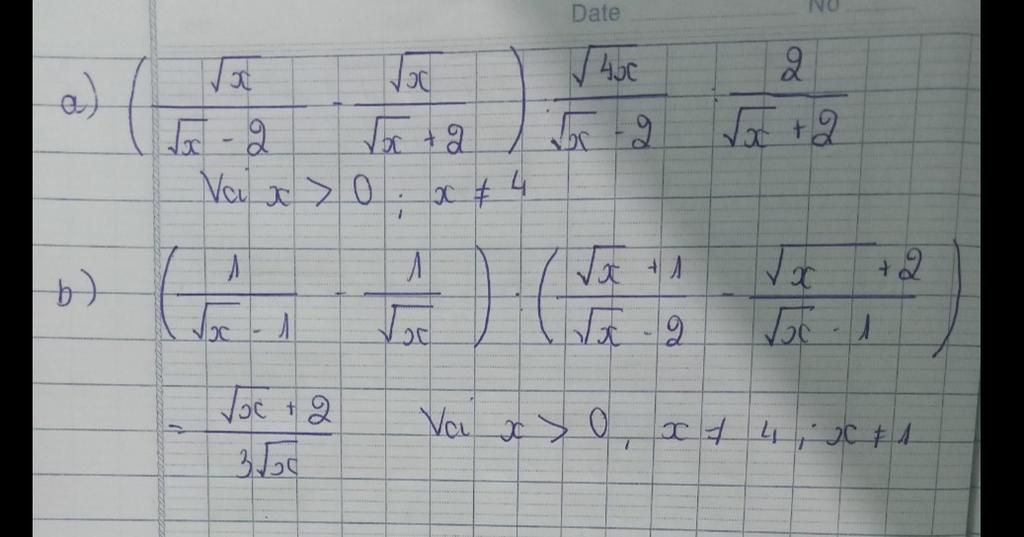 Date No
a) (√x / (√x - 2) - √x / (√x + 2)) : √4x / (√x - 2) . 2 / (√x + 2)
Vơi x > 0 ; x ≠ 4
b) (1 / (√x - 1) - 1 / √x) : ((√x + 1) / (√x - 2) - (√x + 2) / (√x - 1))
= (√x + 2) / 3√x Vơi x > 0, x ≠ 4 ; x ≠ 1